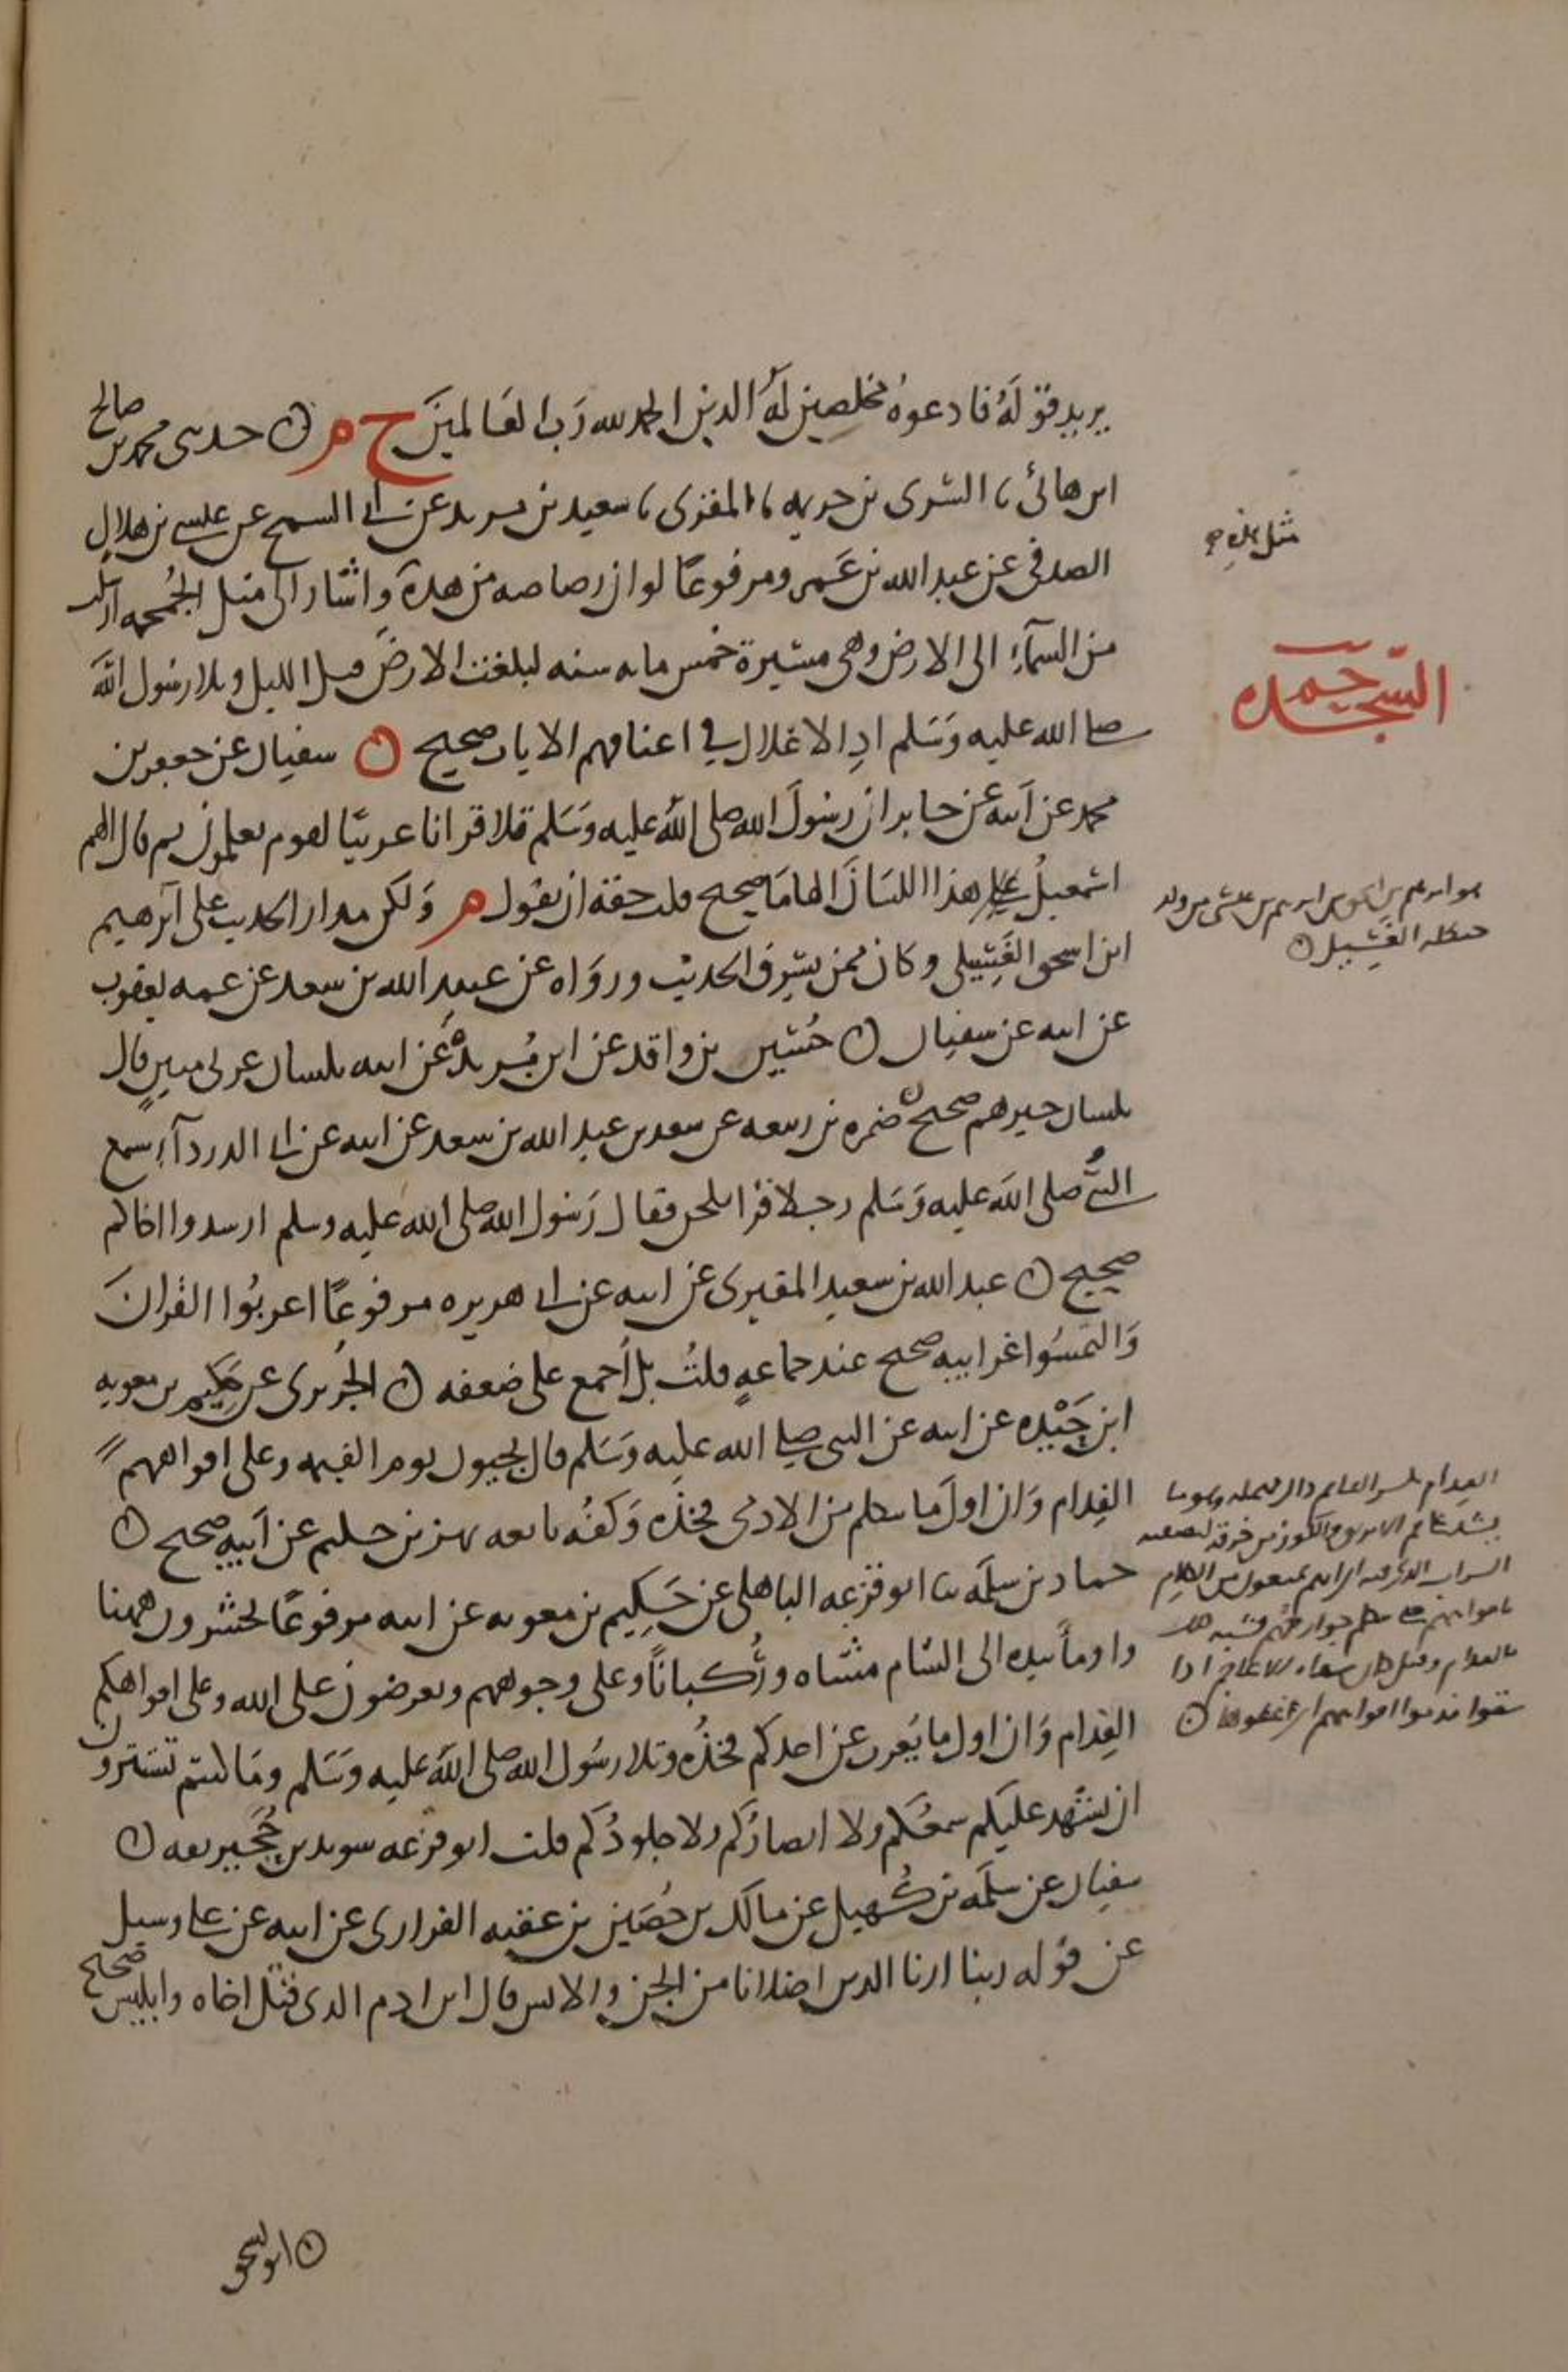 يريد قوله فادعوه مخلصين له الدين الحمد لله رب العالمين خ م ۞ حدثني محمد بن صالح
ابن هانئ ثنا السري بن خزيمة ثنا المقرئ ثنا سعيد بن يزيد عن أبي السمح عن عيسى بن هلال
الصدفي عن عبد الله بن عمرو مرفوعا لو ان رصاصة من هذه واشار الى مثل الجمجمة ارسلت
من السماء الى الارض وهي مسيرة خمس مائة سنة لبلغت الارض قبل الليل وتلا رسول الله
صلى الله عليه وسلم اذ الاغلال في اعناقهم الايات صحيح ۞ سفيان عن جعفر بن
محمد عن ابيه عن جابر ان رسول الله صلى الله عليه وسلم تلا قرانا عربيا لقوم يعلمون ثم قال الهم
اسمعيل على هذا اللسان الهاما صحيح قلت حقه ان يقول م ولكن مدار الحديث على ابرهيم
ابن اسحق الغسيلي وكان ممن يسرق الحديث ورواه عن عبيد الله بن سعد عن عمه يعقوب
عن ابيه عن سفيان ۞ حسين بن واقد عن ابن بريدة عن ابيه بلسان عربي مبين قال
بلسان جرهم صحيح ۞ ضمرة بن ربيعة عن سعد بن عبد الله بن سعد عن ابيه عن أبي الدرداء سمع
النبي صلى الله عليه وسلم رجلا قرا فلحن فقال رسول الله صلى الله عليه وسلم ارشدوا اخاكم
صحيح ۞ عبد الله بن سعيد المقبري عن ابيه عن أبي هريرة مرفوعا اعربوا القران
والتمسوا غرايبه صحيح عند جماعة قلت بل اجمع على ضعفه ۞ الجريري عن حكيم بن معوية
ابن حيدة عن ابيه عن النبي صلى الله عليه وسلم قال تجيون يوم القيمة وعلى افواههم
الفدام وان اول ما يتكلم من الادمي فخذه وكفه تابعه بهز بن حكيم عن ابيه صحيح ۞
حماد بن سلمة ثنا ابو قزعة الباهلي عن حكيم بن معوية عن ابيه مرفوعا تحشرون ههنا
واومأ بيده الى الشام مشاة وركبانا وعلى وجوههم وتعرضون على الله وعلى افواهكم
الفدام وان اول ما يعرب عن احدكم فخذه وتلا رسول الله صلى الله عليه وسلم وما كنتم تستترون
ان يشهد عليكم سمعكم ولا ابصاركم ولا جلودكم قلت ابو قزعة سويد بن حجير ثقة ۞
سفيان عن سلمة بن كهيل عن مالك بن حصين بن عقبة الفزاري عن ابيه عن علي وسيل
عن قوله ربنا ارنا الذين اضلانا من الجن والانس قال ابن ادم الذي قتل اخاه وابليس صحيح
مثل هذه
حم السجدة
هو ابرهيم بن اسحق بن ابرهيم بن عيسى من ولد
حنظلة الغسيل ۞
الفدام بكسر الفا ثم دال مهملة وهو ما
يشد على فم الابريق والكوز من خرقة لتصفية
الشراب الذي فيه اي انهم يمنعون من الكلام
بافواههم حتى تتكلم جوارحهم فشبه ذلك
بالفدام وقيل كان سقاة الاعاجم اذا
سقوا فدموا افواههم اي غطوها ۞
۞ ابو اسحق